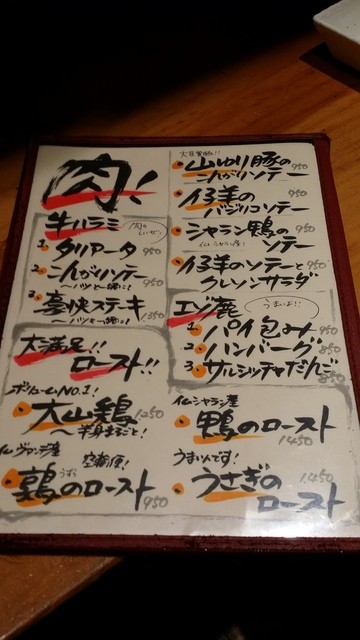 肉!
牛ハラミ
1. タリアータ 950
2. こんがりソテー 950
〜ハツと一緒に!
3. 豪快ステキ 1350
〜ハツと一緒に!
大満足!!
ロースト!!
ボリュームNO.1!
大山鶏 1250
〜半身まるごと!
仏ヴァンデ産
空輸便!
うずら
鶉のロースト 950
山ゆり豚の
こんがりソテー 950
仔羊の
バジリコソテー 950
シャラン鴨の
ソテー 950
仔羊のソテーと
クレソンサラダ 950
エゾ鹿
うまいよ!!
1. パイ包み 950
2. ハンバーグ 850
3 サルシッチャだんご 850
仏シャラン産
鴨のロースト
1450
うまいんです!
うさぎの
ロースト
1450